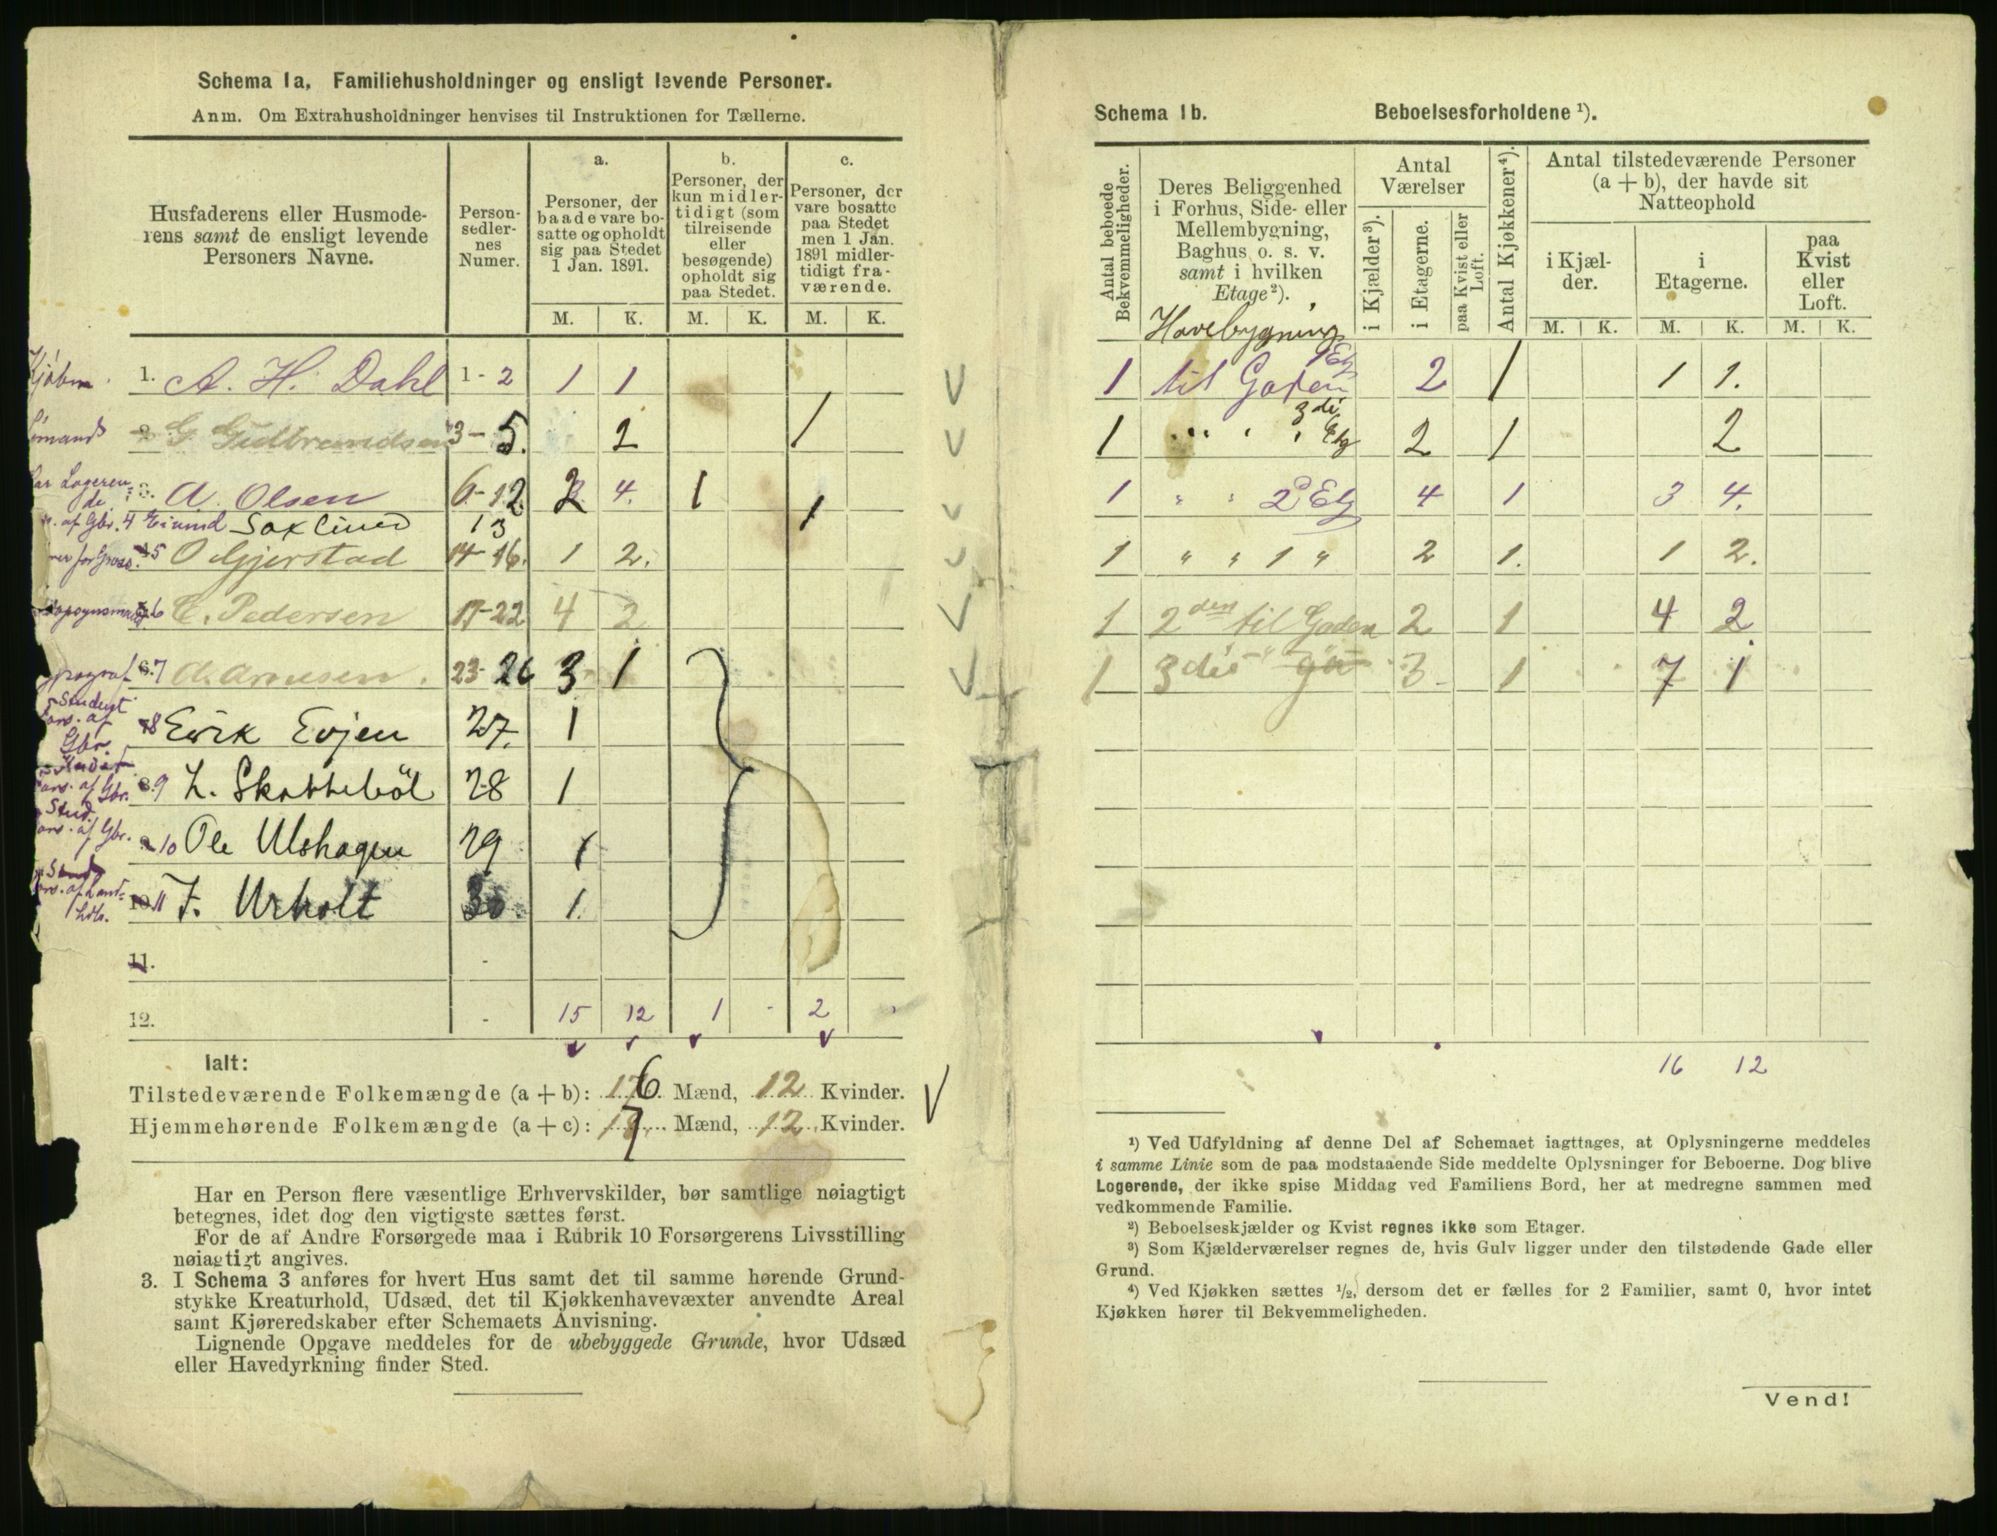 Schema 1a, Familiehusholdninger og ensligt levende Personer.
Anm. Om Extrahusholdninger henvises til Instruktionen for Tællerne.
Husfaderens eller Husmoderens samt de ensligt levende Personers Navne.
Personsedlernes Numer.
a.
Personer, der baade vare bosatte og opholdt sig paa Stedet 1 Jan. 1891.
b.
Personer, der kun midlertidigt (som tilreisende eller besøgende) opholdt sig paa Stedet.
c.
Personer, der vare bosatte paa Stedet men 1 Jan. 1891 midlertidigt fraværende.
M. K. M. K. M. K.
1. A. H. Dahl 1-2 1 1
G. Gudbrandsen 3-5. 2 1
3. A. Olsen 6-12 2 4. 1 1
af Gbr. 4 Eivind Saxlund 13
5 O Gjerstad 14-16. 1 2.
6 C. Pedersen 17-22 4 2
7 A. Arnesen. 23-26 3 1
Student
af Gbr.
8 Erik Evjen 27. 1
af Gbr.
9 L. Skattebøl 28 1
Stud.
af Gbr.
10 Ole Ulshagen 29 1
11 F. Urholt 30. 1.
11.
12. 15 12 1 - 2
Ialt:
Tilstedeværende Folkemængde (a + b): 16 Mænd, 12 Kvinder.
Hjemmehørende Folkemængde (a + c): 17 Mænd, 12 Kvinder.
Har en Person flere væsentlige Erhvervskilder, bør samtlige nøiagtigt
betegnes, idet dog den vigtigste sættes først.
For de af Andre Forsørgede maa i Rubrik 10 Forsørgerens Livsstilling
nøiagtigt angives.
3. I Schema 3 anføres for hvert Hus samt det til samme hørende Grund-
stykke Kreaturhold, Udsæd, det til Kjøkkenhavevæxter anvendte Areal
samt Kjøreredskaber efter Schemaets Anvisning.
Lignende Opgave meddeles for de ubebyggede Grunde, hvor Udsæd
eller Havedyrkning finder Sted.
Schema 1b. Beboelsesforholdene ¹).
Antal beboede Bekvemmeligheder.
Deres Beliggenhed i Forhus, Side- eller Mellembygning, Baghus o. s. v. samt i hvilken Etage²).
Antal Værelser
i Kjælder³).
i Etagerne.
paa Kvist eller Loft.
Antal Kjøkkener⁴).
Antal tilstedeværende Personer (a + b), der havde sit Natteophold
i Kjælder.
i Etagerne.
paa Kvist eller Loft.
M. K. M. K. M. K.
Havebygning
1 til Gaden 1 Etg 2 1 1 1.
1 " " " 3di Etg 2 1 2
1 " " 2 Etg 4 1 3 4.
1 " " 1 " 2 1. 1 2.
1 2den til Gaden 2 1 4 2
1 3die " 3 1 7 1
16 12
¹) Ved Udfyldning af denne Del af Schemaet iagttages, at Oplysningerne meddeles
i samme Linie som de paa modstaaende Side meddelte Oplysninger for Beboerne. Dog blive
Logerende, der ikke spise Middag ved Familiens Bord, her at medregne sammen med
vedkommende Familie.
²) Beboelseskjælder og Kvist regnes ikke som Etager.
³) Som Kjælderværelser regnes de, hvis Gulv ligger under den tilstødende Gade eller
Grund.
⁴) Ved Kjøkken sættes ½, dersom det er fælles for 2 Familier, samt 0, hvor intet
Kjøkken hører til Bekvemmeligheden.
Vend!